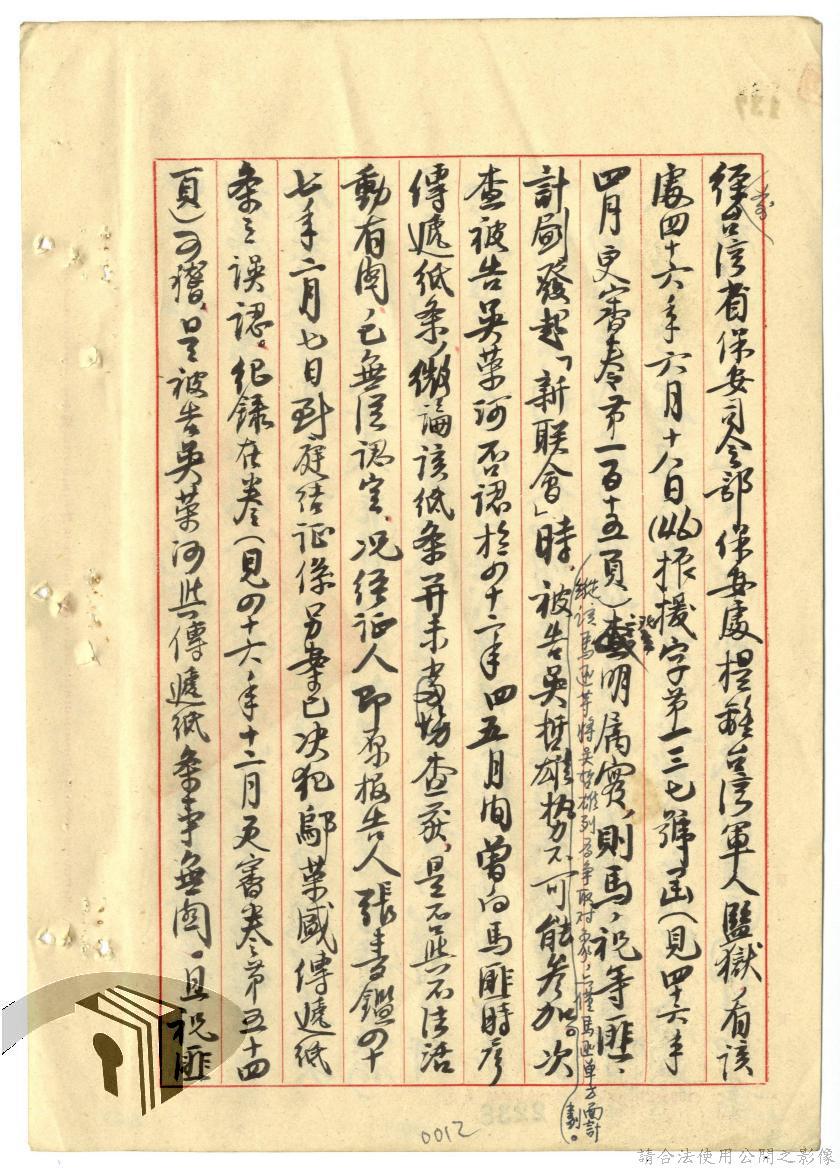 前
經台湾省保安司令部保安處提雜台湾軍人監獄，有該
處四十六年六月十八日(46)振援字第一三七號函（見四十六年
四月更審卷第一百十五頁）證明属實，則馬、祝等匪、
縱該馬匪等將吳哲雄列為爭取对象亦僅馬匪单方面計劃。
計劃發起「新联會」時，被告吳哲雄势不可能參加。次
查被告吳荣河否認於四十二年四五月间曾向馬匪時彥
傳遞纸条，微論該纸条并未當場查获，是否與不法活
動有関，已無從認定，况經证人即原报告人張書鑑四十
七年二月七日到庭结证係另案已决犯鄢荣盛傳遞纸
条之誤認。纪錄在卷（見四十六年十二月更審卷第五十四
頁）可稽，是被告吳荣河與傳遞纸条事無関，且祝匪
0012
請合法使用公開之影像